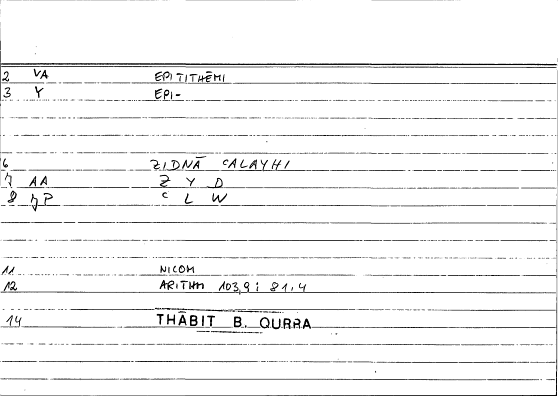 2 VA EPITITHĒMI
3 Y EPI-
6 ZIDNĀ ʿALAYHI
7 AA Z Y D
8 ʿ L W
11 NICOM
12 ARITHM 103,9 : 81,4
14 THĀBIT B. QURRA